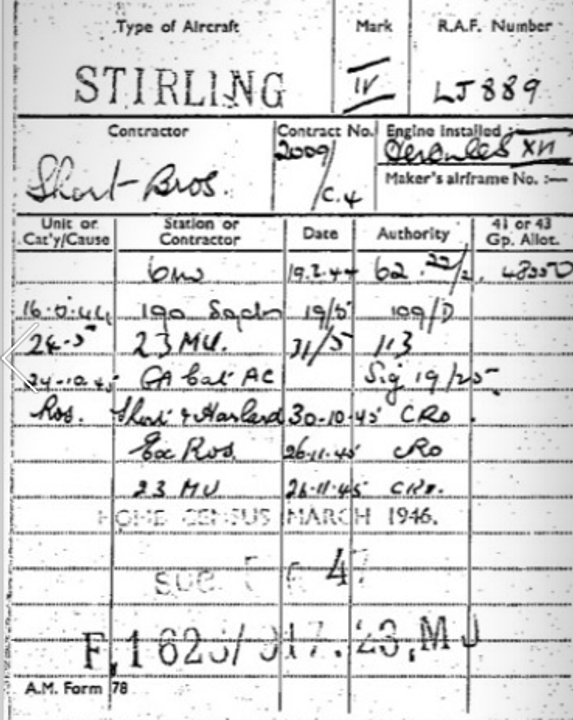 Type of Aircraft Mark R.A.F. Number
STIRLING IV LJ889
Contractor Contract No. Engine Installed :—
Short Bros. 2009/C.4 Hercules XVI
Maker's airframe No. :—
Unit or Cat'y/Cause Station or Contractor Date Authority 41 or 43 Gp. Allot.
6MU 19.2.44 62
190 Sqdn 19/5 109/D
24-5 23 MU. 31/5 113
24-10-45 CA Cat AC Sig 19/25
Ros. Short & Harland 30-10-45 CRO
Ros. 26-11-45 CRO
23 MU 26-11-45 CRO.
HOME CENSUS MARCH 1946.
47
23.MU
A.M. Form 78